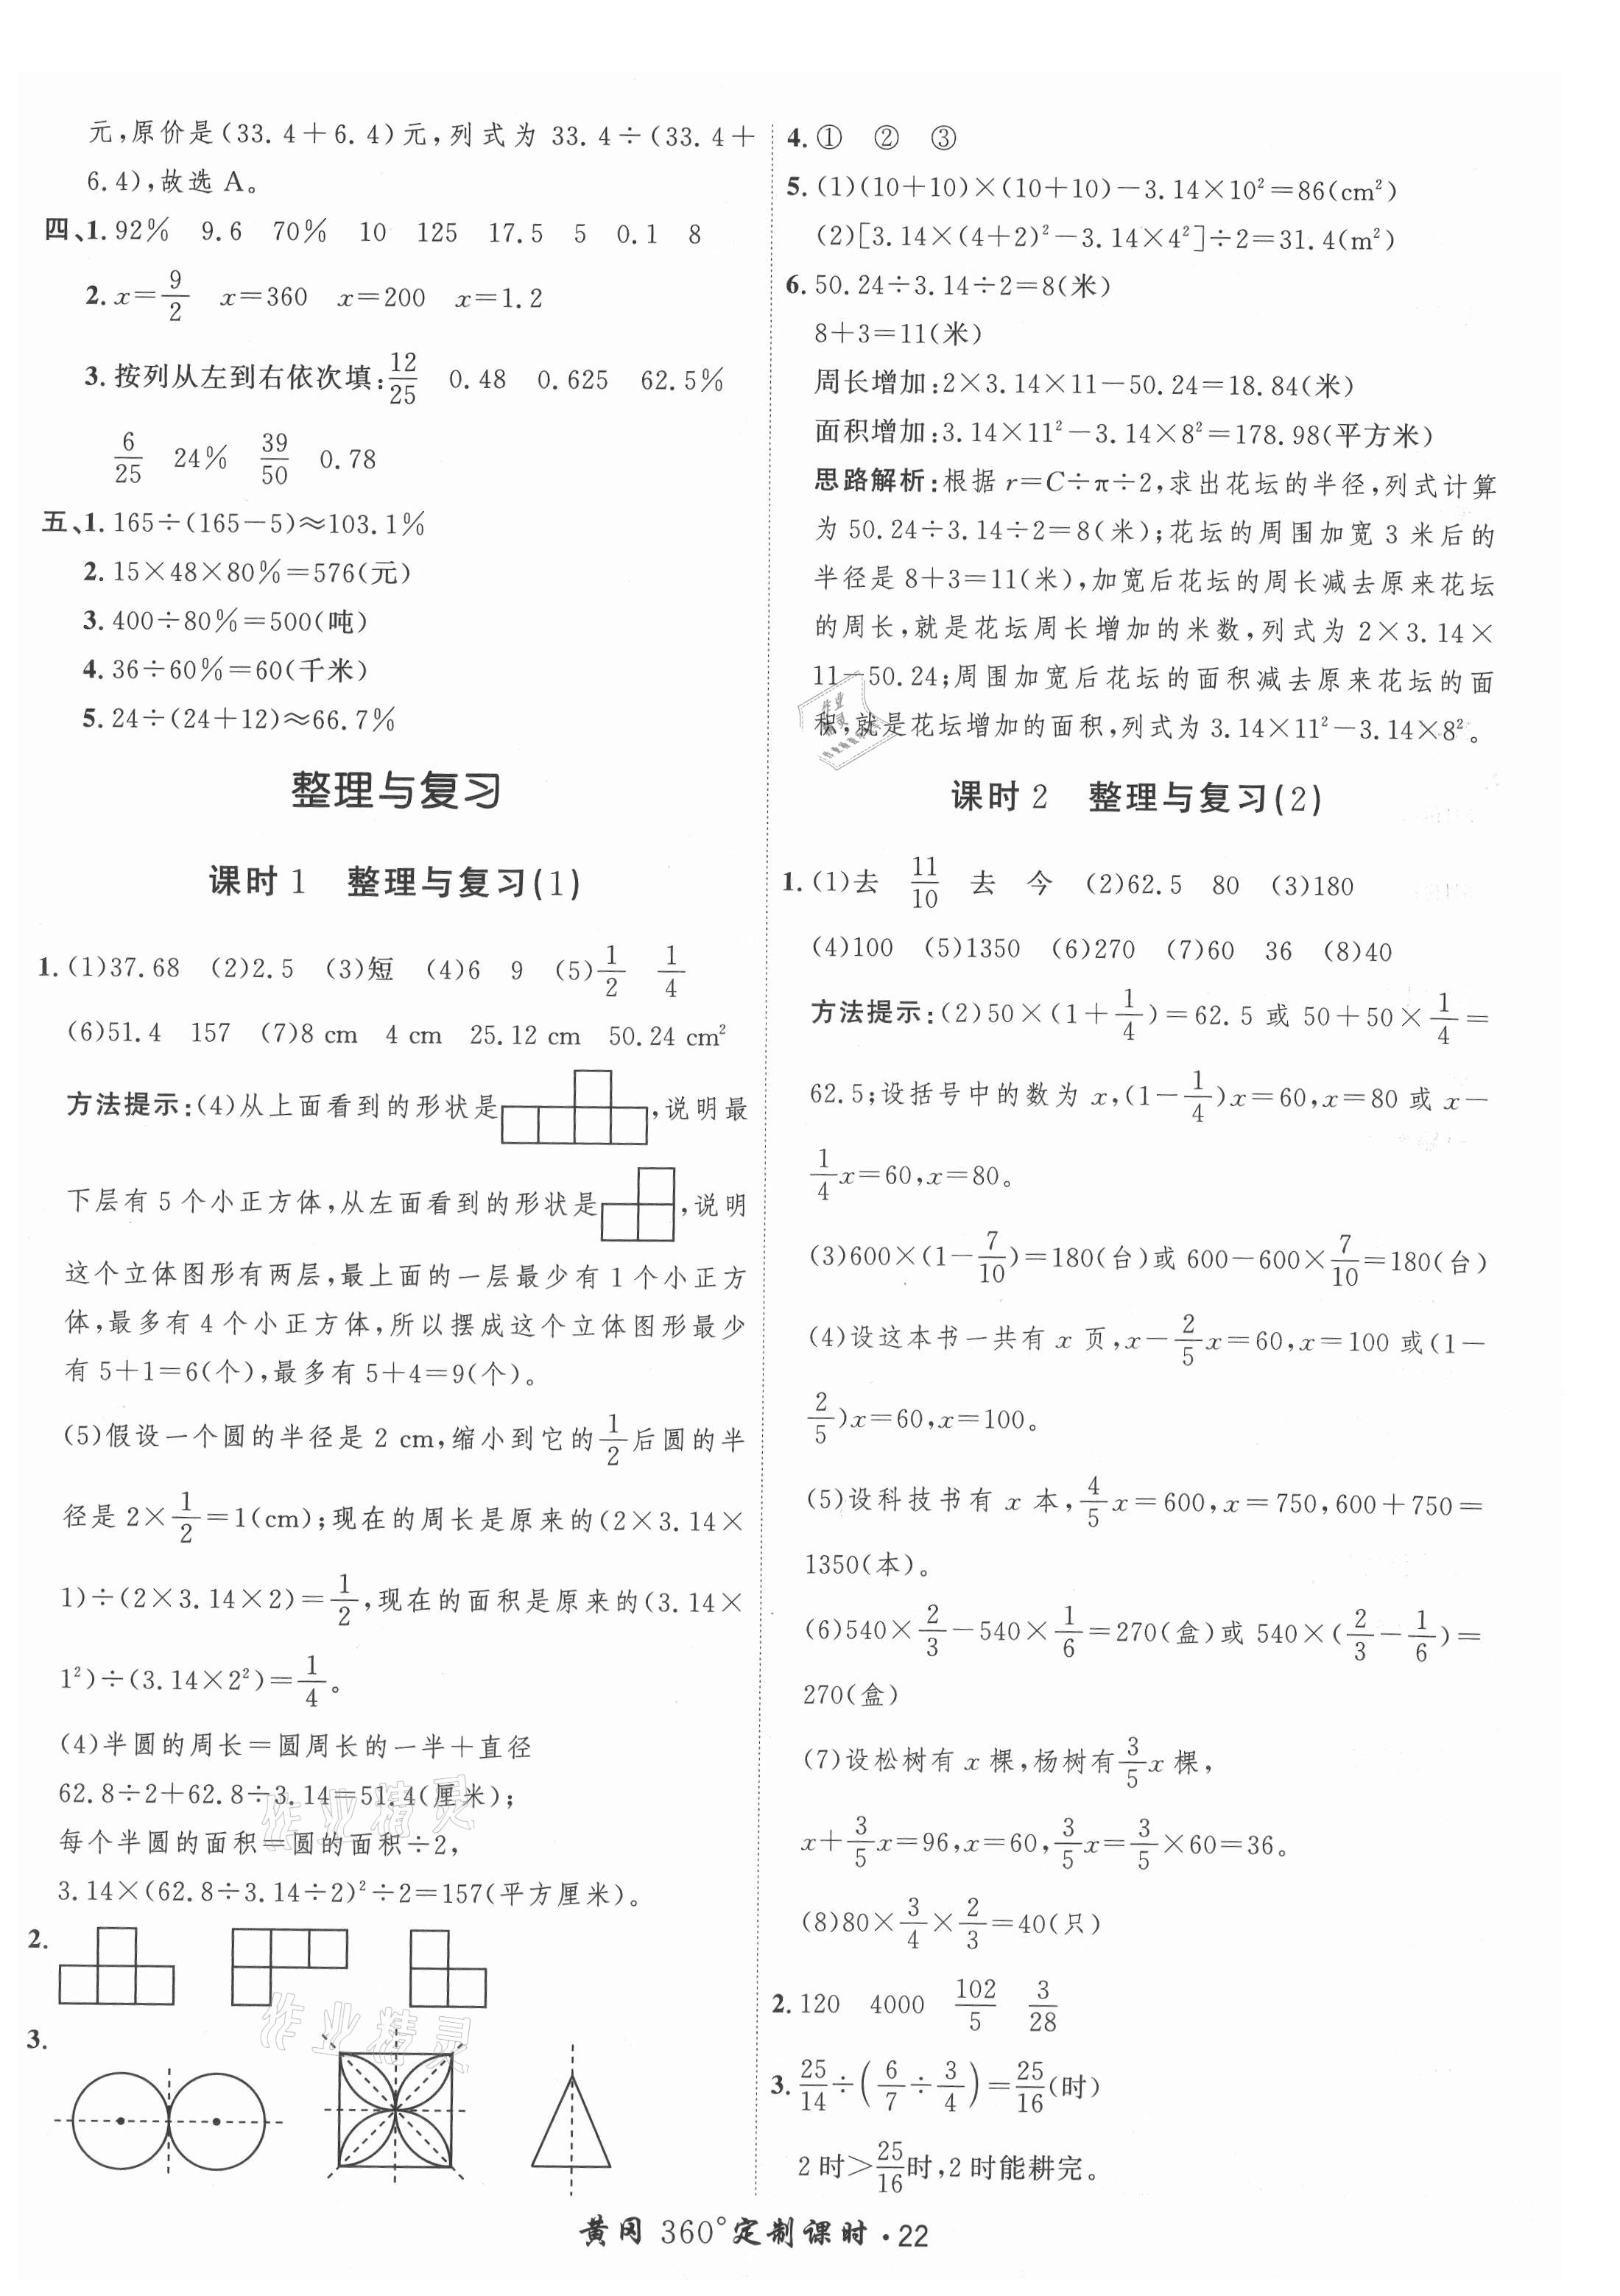 元,原价是(33.4+6.4)元,列式为 33.4÷(33.4+
6.4),故选 A。
四、1. 92% 9.6 70% 10 125 17.5 5 0.1 8
2. x=9/2 x=360 x=200 x=1.2
3. 按列从左到右依次填:12/25 0.48 0.625 62.5%
6/25 24% 39/50 0.78
五、1. 165÷(165-5)≈103.1%
2. 15×48×80%=576(元)
3. 400÷80%=500(吨)
4. 36÷60%=60(千米)
5. 24÷(24+12)≈66.7%
整理与复习
课时1 整理与复习(1)
1. (1)37.68 (2)2.5 (3)短 (4)6 9 (5)1/2 1/4
(6)51.4 157 (7)8 cm 4 cm 25.12 cm 50.24 cm²
方法提示:(4)从上面看到的形状是 ,说明最
下层有 5 个小正方体,从左面看到的形状是 ,说明
这个立体图形有两层,最上面的一层最少有 1 个小正方
体,最多有 4 个小正方体,所以摆成这个立体图形最少
有 5+1=6(个),最多有 5+4=9(个)。
(5)假设一个圆的半径是 2 cm,缩小到它的1/2后圆的半
径是 2×1/2=1(cm);现在的周长是原来的(2×3.14×
1)÷(2×3.14×2)=1/2,现在的面积是原来的(3.14×
1²)÷(3.14×2²)=1/4。
(4)半圆的周长=圆周长的一半+直径
62.8÷2+62.8÷3.14=51.4(厘米);
每个半圆的面积=圆的面积÷2,
3.14×(62.8÷3.14÷2)²÷2=157(平方厘米)。
2.
3.
4. ① ② ③
5. (1)(10+10)×(10+10)-3.14×10²=86(cm²)
(2)[3.14×(4+2)²-3.14×4²]÷2=31.4(m²)
6. 50.24÷3.14÷2=8(米)
8+3=11(米)
周长增加:2×3.14×11-50.24=18.84(米)
面积增加:3.14×11²-3.14×8²=178.98(平方米)
思路解析:根据 r=C÷π÷2,求出花坛的半径,列式计算
为 50.24÷3.14÷2=8(米);花坛的周围加宽 3 米后的
半径是 8+3=11(米),加宽后花坛的周长减去原来花坛
的周长,就是花坛周长增加的米数,列式为 2×3.14×
11-50.24;周围加宽后花坛的面积减去原来花坛的面
积,就是花坛增加的面积,列式为 3.14×11²-3.14×8²。
课时2 整理与复习(2)
1. (1)去 11/10 去 今 (2)62.5 80 (3)180
(4)100 (5)1350 (6)270 (7)60 36 (8)40
方法提示:(2)50×(1+1/4)=62.5 或 50+50×1/4=
62.5;设括号中的数为 x,(1-1/4)x=60,x=80 或 x-
1/4x=60,x=80。
(3)600×(1-7/10)=180(台)或 600-600×7/10=180(台)
(4)设这本书一共有 x 页,x-2/5x=60,x=100 或(1-
2/5)x=60,x=100。
(5)设科技书有 x 本,4/5x=600,x=750,600+750=
1350(本)。
(6)540×2/3-540×1/6=270(盒)或 540×(2/3-1/6)=
270(盒)
(7)设松树有 x 棵,杨树有3/5x 棵,
x+3/5x=96,x=60,3/5x=3/5×60=36。
(8)80×3/4×2/3=40(只)
2. 120 4000 102/5 3/28
3. 25/14÷(6/7÷3/4)=25/16(时)
2 时>25/16时,2 时能耕完。
作业精灵
作业精灵
黄冈 360°定制课时·22